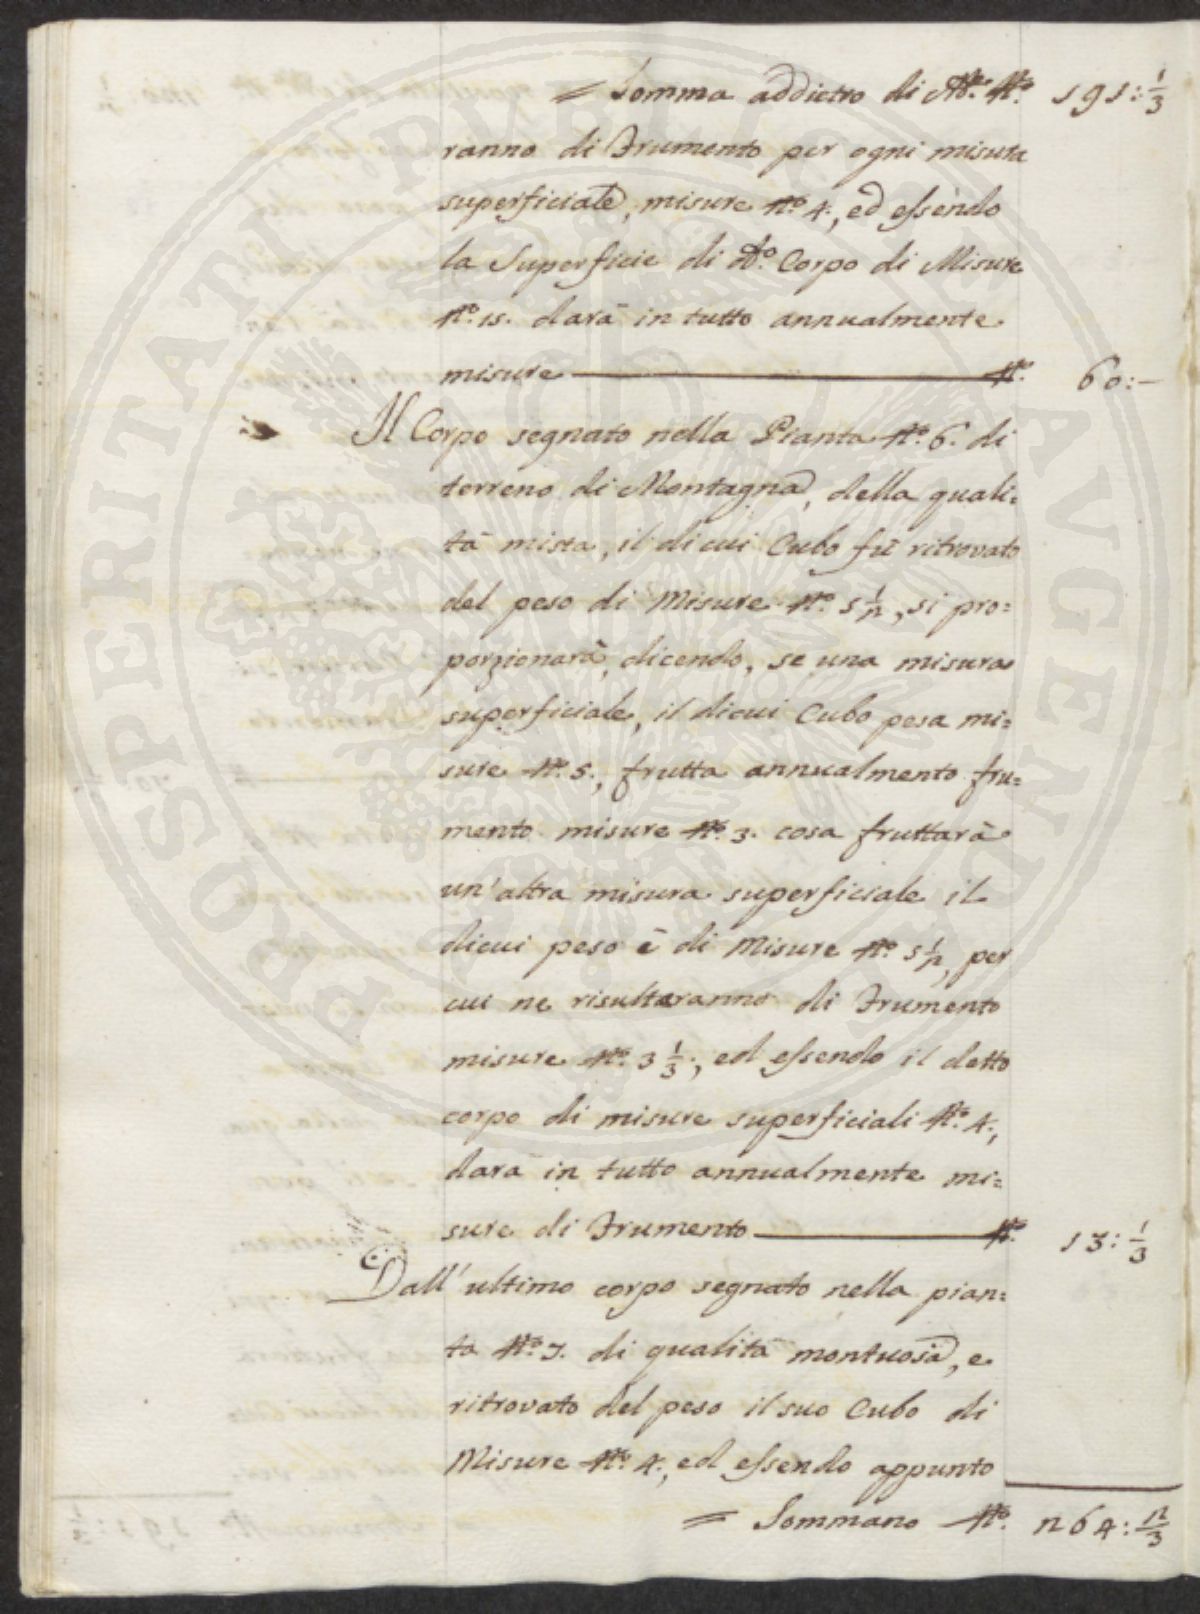 = Somma addietro di Mre. No. 191: 1/3
ranno di Frumento per ogni misura
superficiale, misure No. 4., ed essendo
la Superficie di do. Corpo di Misure
No. 15. darà in tutto annualmente
misure — No. 60:—
Il Corpo segnato nella Pianta No. 6. di
terreno di Montagna, della quali=
tà mista, il di cui Cubo fù ritrovato
del peso di Misure No. 5 1/2, si pro=
porzionarà, dicendo, se una misura
superficiale, il dicui Cubo pesa mi=
sure No. 5., frutta annualmento fru=
mento misure No. 3. cosa fruttarà
un'altra misura superficiale il
dicui peso è di Misure No. 5 1/2, per
cui ne risultaranno di Frumento
misure No. 3 1/3., ed essendo il detto
corpo di misure superficiali No. 4.,
darà in tutto annualmente mi=
sure di Frumento — No. 13: 1/3
Dall'ultimo corpo segnato nella pian=
ta No. 7. di qualità montuosa, e
ritrovato del peso il suo Cubo di
Misure No. 4., ed essendo appunto
= Sommano No. 264: 2/3
PROSPERITATI PUBLICAE AVGENDAE